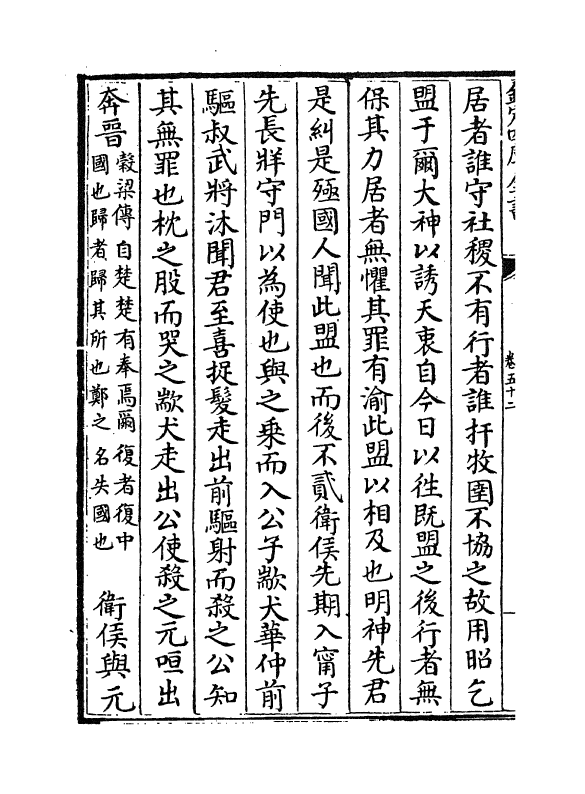 欽定四庫全書
卷五十二
居者誰守社稷不有行者誰扞牧圉不協之故用昭乞
盟于爾大神以誘天衷自今日以徃既盟之後行者無
保其力居者無懼其罪有渝此盟以相及也明神先君
是糾是殛國人聞此盟也而後不貳衛侯先期入甯子
先長牂守門以為使也與之乗而入公子歂犬華仲前
驅叔武將沐聞君至喜捉髪走出前驅射而殺之公知
其無罪也枕之股而哭之歂犬走出公使殺之元咺出
奔晉 榖梁傳自楚楚有奉焉爾復者復中
國也歸者歸其所也鄭之名失國也 衛侯與元